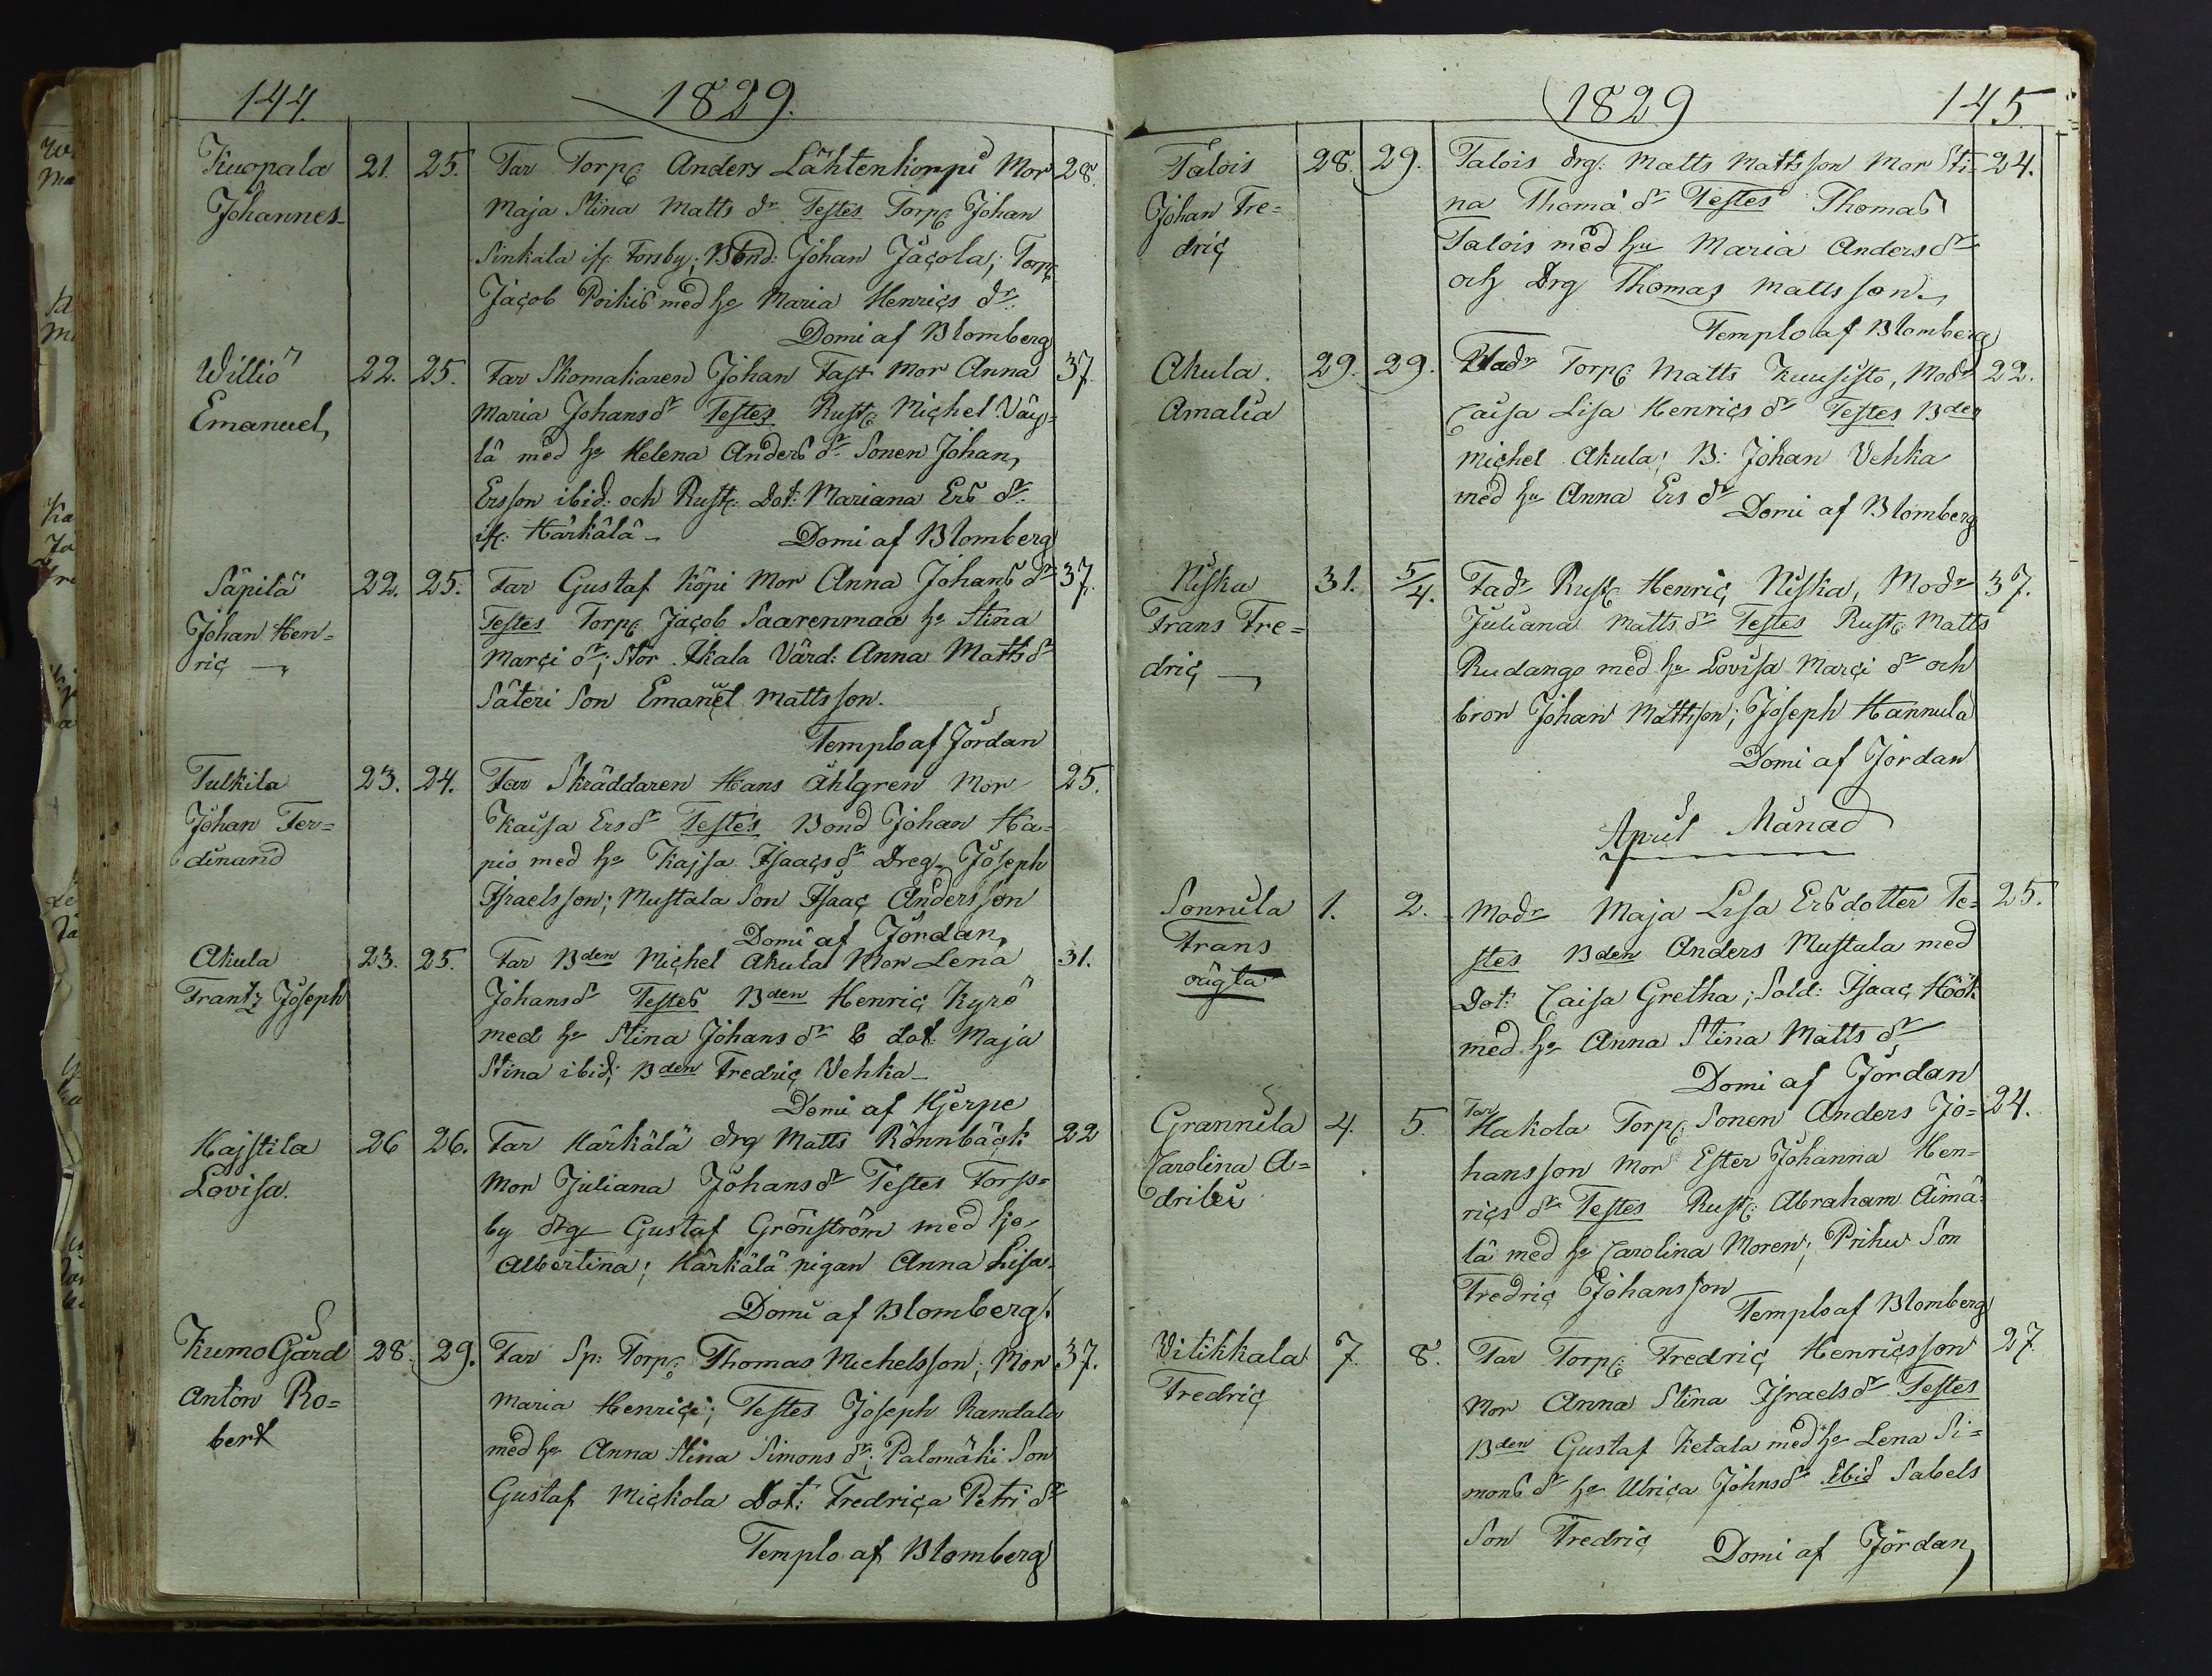 144.
1829.
Kuopala 21. 25. Far Torp: Anders Lähtenkorpi Mor 28.
Johannes Maja Stina Matts dr Testes Torp: Johan
Sinkala if: Forsby; Bond: Johan Jacola; Torp:
Jacob Poikis med h: Maria Henrics dr.
Domi af Blomberg
Williö 22. 25. Far Skomakaren Johan Fast Mor Anna 37.
Emanuel, Maria Johans dr Testes Rust: Michel Väy=
lä med h: Helena Anders dr Sonen Johan
Ersson ibid: och Rust: Dot: Mariana Ers dr.
if: Härkälä Domi af Blomberg
Säpilä 22. 25. Far Gustaf Köpi Mor Anna Johans dr 37.
Johan Hen= Testes Torp: Jacob Saarenmaa h: Stina
ric Marci dr; Stor Ikala Värd: Anna Matts dr
Säteri Son Emanuel Mattsson.
Templo af Jordan
Tulkila 23. 24. Far Skräddaren Hans Ahlgren Mor 25.
Johan Fer= Kaisa Ers dr Testes Bond Johan Ha=
dinand pio med h: Kajsa Isaacs dr Dreg: Joseph
Israelsson; Mustala Son Isaac Andersson
Domi af Jordan,
Akula 23. 25. Far Bden Michel Akula Mor Lena 31.
Frantz Joseph Johans dr Testes Bden Henric Kyrö
med h: Stina Johans dr & dot: Maja
Stina ibid; Bden Fredric Vehka
Domi af Hjerpe
Hajstila 26 26. Far Härkälä drg Matts Rönnbäck 22
Lovisa. Mor Juliana Johans dr Testes Forss=
by drg Gustaf Grönström med hjo
Albertina; Härkälä pigan Anna Lisa.
Domi af Blomberg.
Kumo Gård 28. 29. Far Sp: Torp: Thomas Michelsson; Mor 37.
Anton Ro= Maria Henrici; Testes Joseph Randala
bert med h: Anna Stina Simons dr; Palomäki Son
Gustaf Mickola Dot: Fredrica Petri dr
Templo af Blomberg
1829
145
Talois 28. 29. Talois drg: Matts Mattsson Mor Sti= 24.
Johan Fre= na Thomä dr Testes Thomas
dric Talois med hu Maria Anders dr
och Drg Thomas Mattsson
Templo af Blomberg
Akula. 29. 29. Fadr Torp: Matts Kuusisto, Modr 22.
Amalia Caisa Lisa Henrics dr Testes Bden
Michel Akula; B: Johan Vehka
med hu Anna Ers dr Domi af Blomberg
Niska 31. 5/4. Fadr Rust: Henric Niska, Modr 37.
Frans Fre= Juliana Matts dr Testes Rust: Matts
dric Rudango med hu Lovisa Marci dr och
bron Johan Mattsson; Joseph Hannula
Domi af Jordan
April Månad
Sonnila 1. 2. Modr Maja Lisa Ersdotter Te= 25.
Frans stes Bden Anders Mustula med
oägta Dot: Caisa Gretha; Sold: Isaac Höök
med h: Anna Stina Matts dr
Domi af Jordan
Grannila 4. 5. Far Hakola Torp: Sonen Anders Jo= 24.
Carolina A= hansson Mor Ester Johanna Hen=
rics dr Testes Rust: Abraham Äimä=
lä med h: Carolina Moren; Prihu Son
Fredric Johansson
Templo af Blomberg
Vitikkala 7. 8. Far Torp: Fredric Henricsson 27
Fredric Mor Anna Stina Israels dr Testes
Bden Gustaf Ketala med h: Lena Si=
mons dr h: Ulrica Johns dr ibid Sabels
Son Fredric Domi af Jordan,